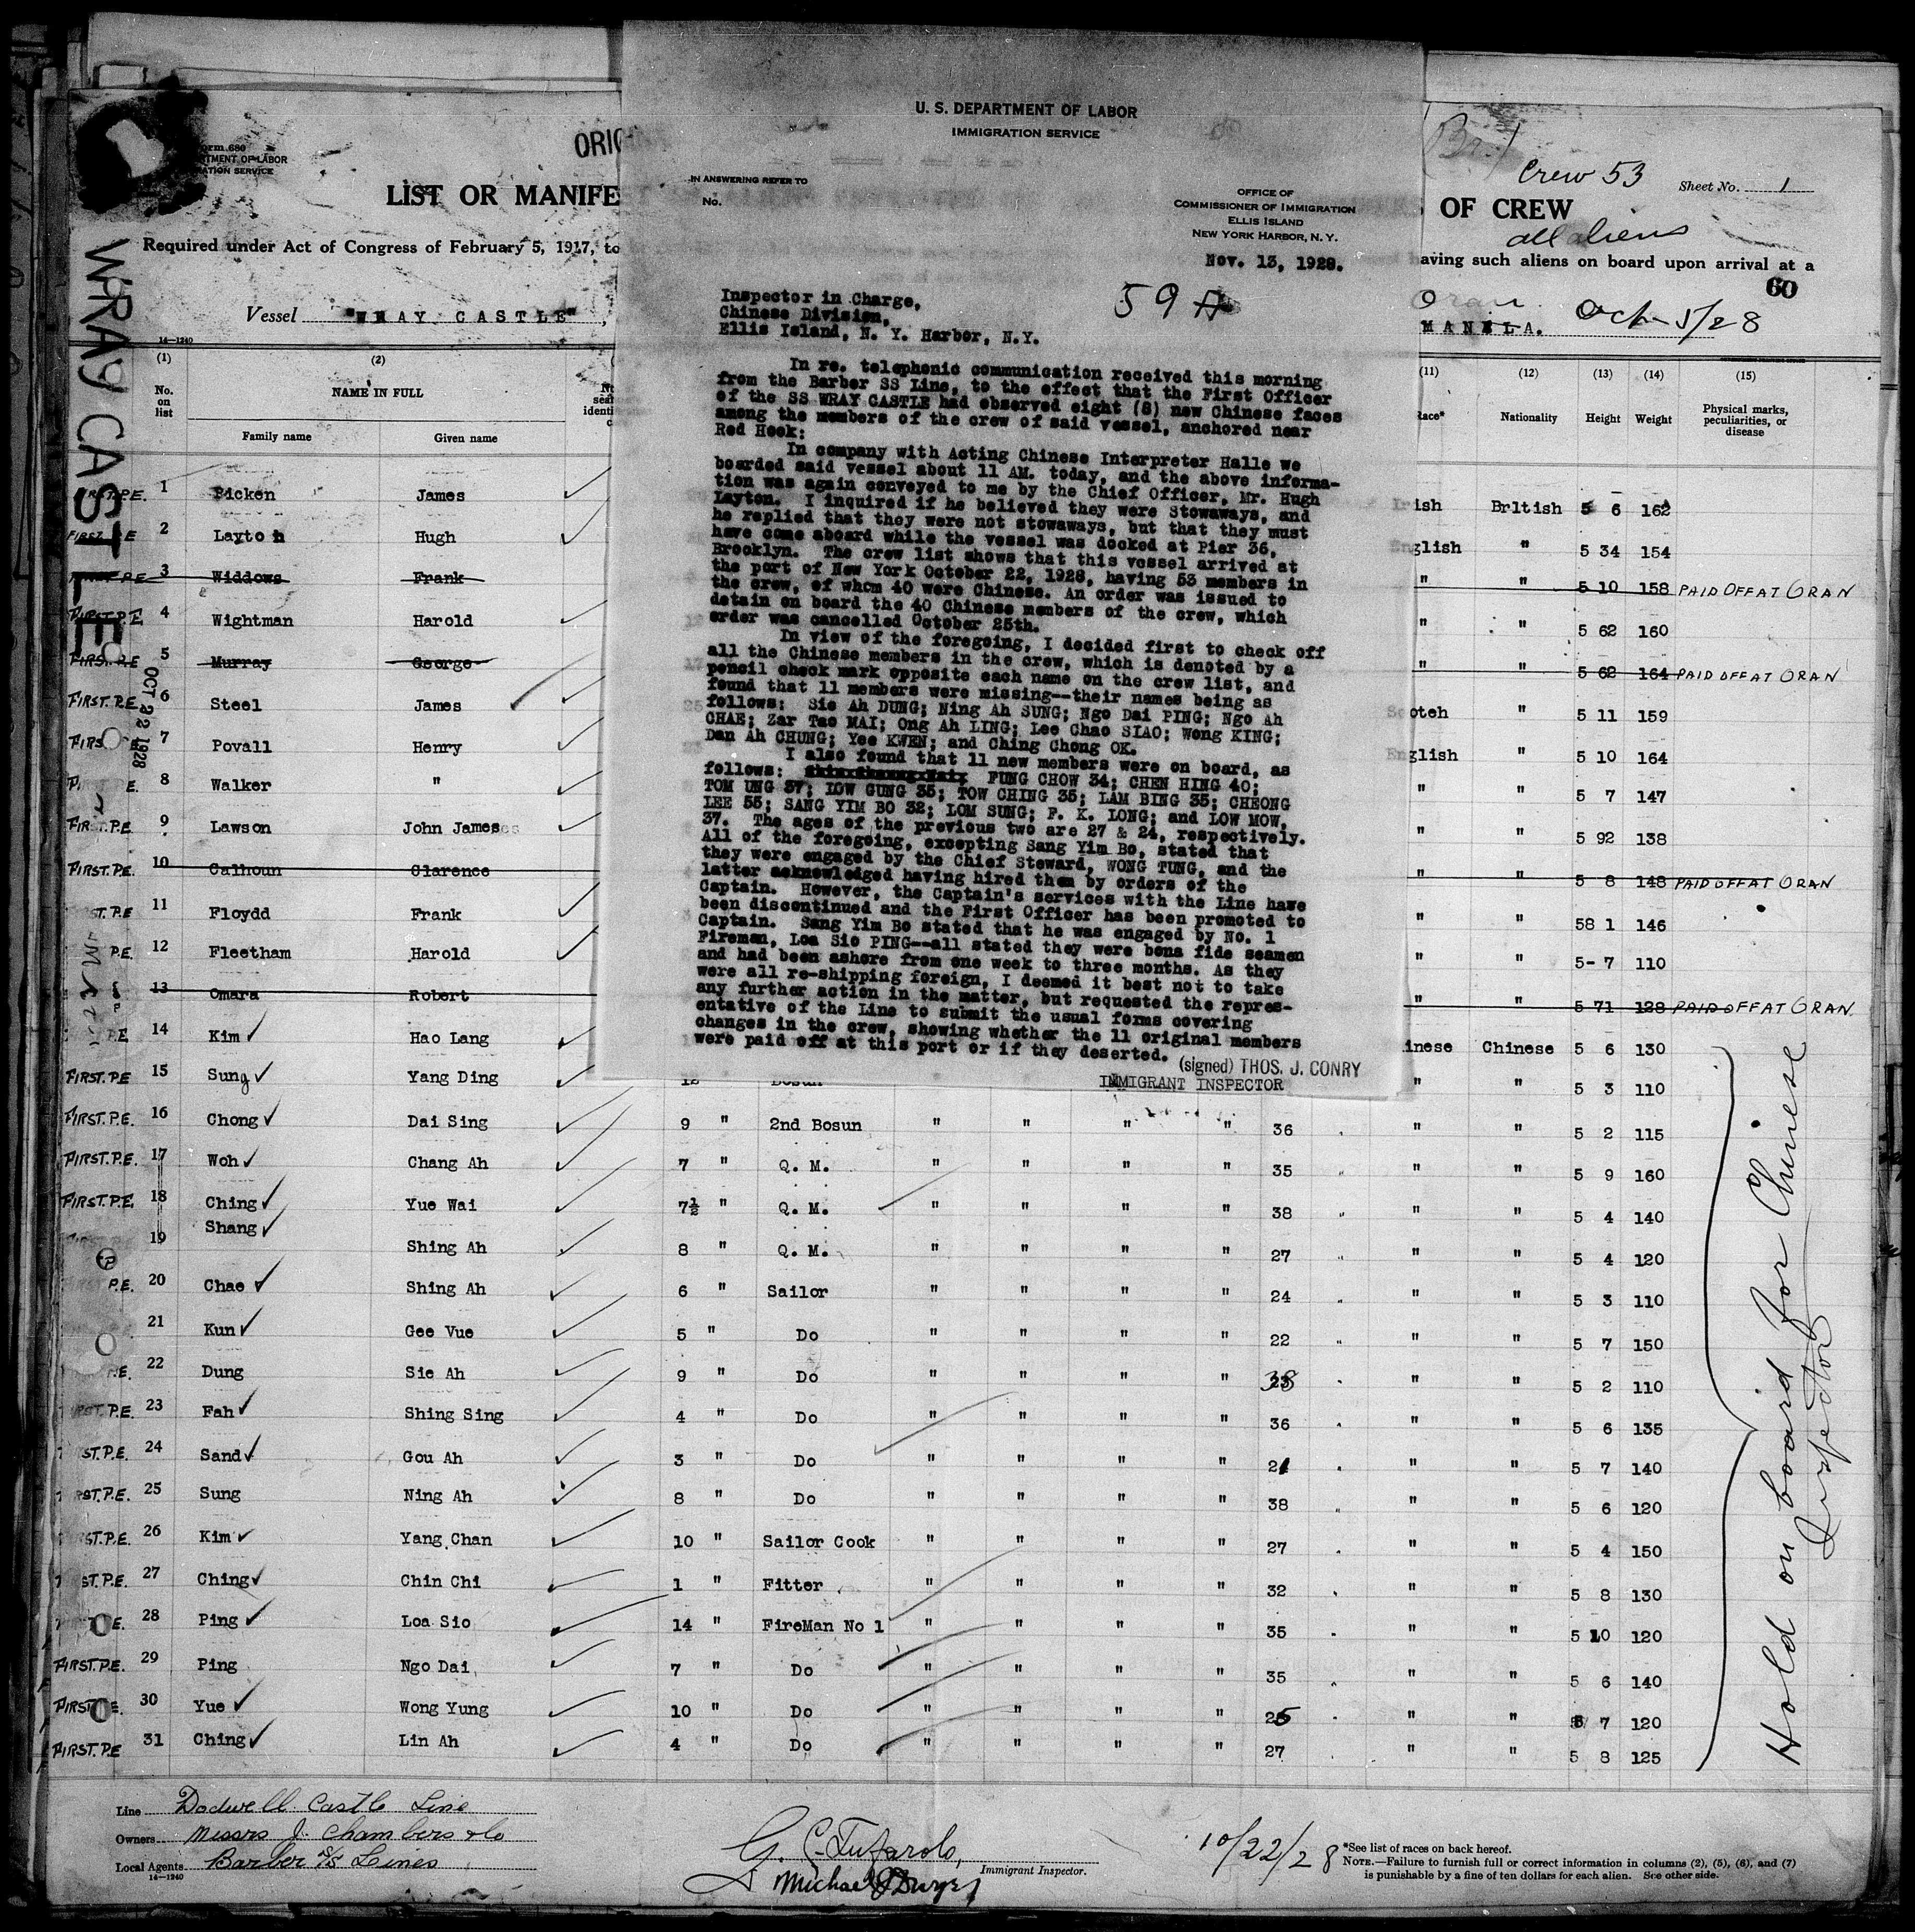 Form 680
U. S. DEPARTMENT OF LABOR
IMMIGRATION SERVICE
ORIG
LIST OR MANIFE
Required under Act of Congress of February 5, 1917, to
Vessel "WRAY CASTLE",
14—1240
WRAY CASTLE
OCT 22 1928
U. S. DEPARTMENT OF LABOR
IMMIGRATION SERVICE
IN ANSWERING REFER TO
No.
OFFICE OF
COMMISSIONER OF IMMIGRATION
ELLIS ISLAND
NEW YORK HARBOR, N. Y.
Nov. 13, 1928.
59
Inspector in Charge,
Chinese Division,
Ellis Island, N. Y. Harbor, N.Y.
In re. telephonic communication received this morning
from the Barber SS Line, to the effect that the First Officer
of the SS WRAY CASTLE had observed eight (8) new Chinese faces
among the members of the crew of said vessel, anchored near
Red Hook:
In company with Acting Chinese Interpreter Halle we
boarded said vessel about 11 AM. today, and the above informa-
tion was again conveyed to me by the Chief Officer, Mr. Hugh
Layton. I inquired if he believed they were Stowaways, and
he replied that they were not stowaways, but that they must
have come aboard while the vessel was docked at Pier 36,
Brooklyn. The crew list shows that this vessel arrived at
the port of New York October 22, 1928, having 53 members in
the crew, of whom 40 were Chinese. An order was issued to
detain on board the 40 Chinese members of the crew, which
order was cancelled October 25th.
In view of the foregoing, I decided first to check off
all the Chinese members in the crew, which is denoted by a
pencil check mark opposite each name on the crew list, and
found that 11 members were missing--their names being as
follows: Sie Ah DUNG; Ning Ah SUNG; Ngo Dai PING; Ngo Ah
CHAE; Zar Tao MAI; Ong Ah LING; Lee Chao SIAO; Wong KING;
Dan Ah CHUNG; Yee KWEN; and Ching Chong OK.
I also found that 11 new members were on board, as
follows: FUNG CHOW 34; CHEN HING 40;
TOM UNG 37; LOW GUNG 35; TOW CHING 35; LAM BING 35; CHEONG
LEE 55; SANG YIM BO 32; LOM SUNG; F. K. LONG; and LOW MOW,
37. The ages of the previous two are 27 & 24, respectively.
All of the foregoing, excepting Sang Yim Bo, stated that
they were engaged by the Chief Steward, WONG TUNG, and the
latter acknowledged having hired them by orders of the
Captain. However, the Captain's services with the Line have
been discontinued and the First Officer has been promoted to
Captain. Sang Yim Bo stated that he was engaged by No. 1
Fireman, Loa Sio PING--all stated they were bona fide seamen
and had been ashore from one week to three months. As they
were all re-shipping foreign, I deemed it best not to take
any further action in the matter, but requested the repres-
entative of the Line to submit the usual forms covering
changes in the crew, showing whether the 11 original members
were paid off at this port or if they deserted.
(signed) THOS. J. CONRY
IMMIGRANT INSPECTOR
(Br.)
Crew 53
Sheet No. 1
OF CREW
all aliens
aving such aliens on board upon arrival at a
60
Oran
MANILA. Oct 5/28
(1) (2) (11) (12) (13) (14) (15)
No. on list NAME IN FULL Race* Nationality Height Weight Physical marks, peculiarities, or disease
Family name Given name
FIRST.P.E. 1 Picken James Irish British 5 6 162
FIRST.P.E 2 Layton Hugh English " 5 34 154
FIRST P.E 3 Widdows Frank " " 5 10 158 PAID OFF AT ORAN
FIRST.P.E 4 Wightman Harold " " 5 62 160
FIRST.P.E 5 Murray George " " 5 62 164 PAID OFF AT ORAN
FIRST.P.E 6 Steel James Scotch " 5 11 159
FIRST 7 Povall Henry English " 5 10 164
FIRST P.E. 8 Walker " " " 5 7 147
FIRST.P.E 9 Lawson John James " " 5 92 138
FIRST.P.E. 10 Calhoun Clarence " " 5 8 148 PAID OFF AT ORAN
ST.P.E 11 Floydd Frank " " 58 1 146
P.E. 12 Fleetham Harold " " 5- 7 110
13 Omara Robert " " 5 71 128 PAID OFF AT ORAN.
P.E 14 Kim ✓ Hao Lang Chinese Chinese 5 6 130
FIRST.P.E 15 Sung ✓ Yang Ding 12 Bosun " " 5 3 110
FIRST.P.E. 16 Chong ✓ Dai Sing 9 " 2nd Bosun " " " " 36 " " 5 2 115
FIRST.P.E. 17 Woh ✓ Chang Ah 7 " Q. M. " " " " 35 " " 5 9 160
FIRST.P.E. 18 Ching ✓ Yue Wai 7½ " Q. M. " " " " 38 " " 5 4 140
19 Shang ✓ Shing Ah 8 " Q. M. " " " " 27 " " 5 4 120
P.E. 20 Chae ✓ Shing Ah 6 " Sailor " " " " 24 " " 5 3 110
21 Kun ✓ Gee Vue 5 " Do " " " " 22 " " 5 7 150
P.E. 22 Dung Sie Ah 9 " Do " " " " 38 " " 5 2 110
ST.P.E. 23 Fah ✓ Shing Sing 4 " Do " " " " 36 " " 5 6 135
ST.P.E. 24 Sand ✓ Gou Ah 3 " Do " " " " 21 " " 5 7 140
ST.P.E. 25 Sung Ning Ah 8 " Do " " " " 38 " " 5 6 120
ST.P.E. 26 Kim ✓ Yang Chan 10 " Sailor Cook " " " " 27 " " 5 4 150
ST.P.E. 27 Ching ✓ Chin Chi 1 " Fitter " " " " 32 " " 5 8 130
E. 28 Ping ✓ Loa Sio 14 " FireMan No 1 " " " " 35 " " 5 10 120
FIRST.P.E. 29 Ping Ngo Dai 7 " Do " " " " 35 " " 5 6 140
FIRST E. 30 Yue ✓ Wong Yung 10 " Do " " " " 25 " " 5 7 120
FIRST.P.E 31 Ching ✓ Lin Ah 4 " Do " " " " 27 " " 5 8 125
Hold on board for Chinese
Inspector
Line Dodwell Castle Line
Owners Messrs J. Chambers & Co
Local Agents Barber S/S Lines
14—1240
G. C. Tufarolo,
Immigrant Inspector.
10/22/28
*See list of races on back hereof.
NOTE.—Failure to furnish full or correct information in columns (2), (5), (6), and (7)
is punishable by a fine of ten dollars for each alien. See other side.